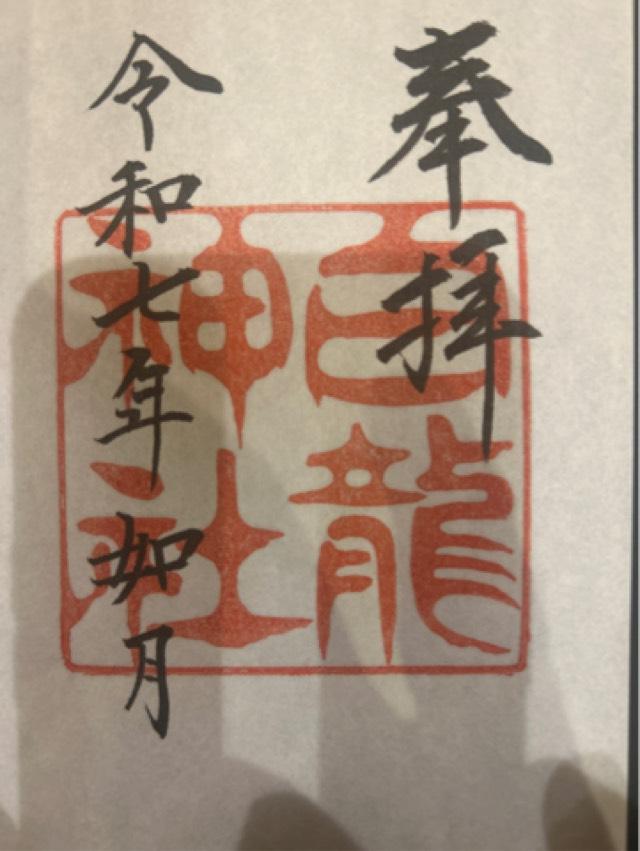 奉拝
白龍
神社
令和七年如月